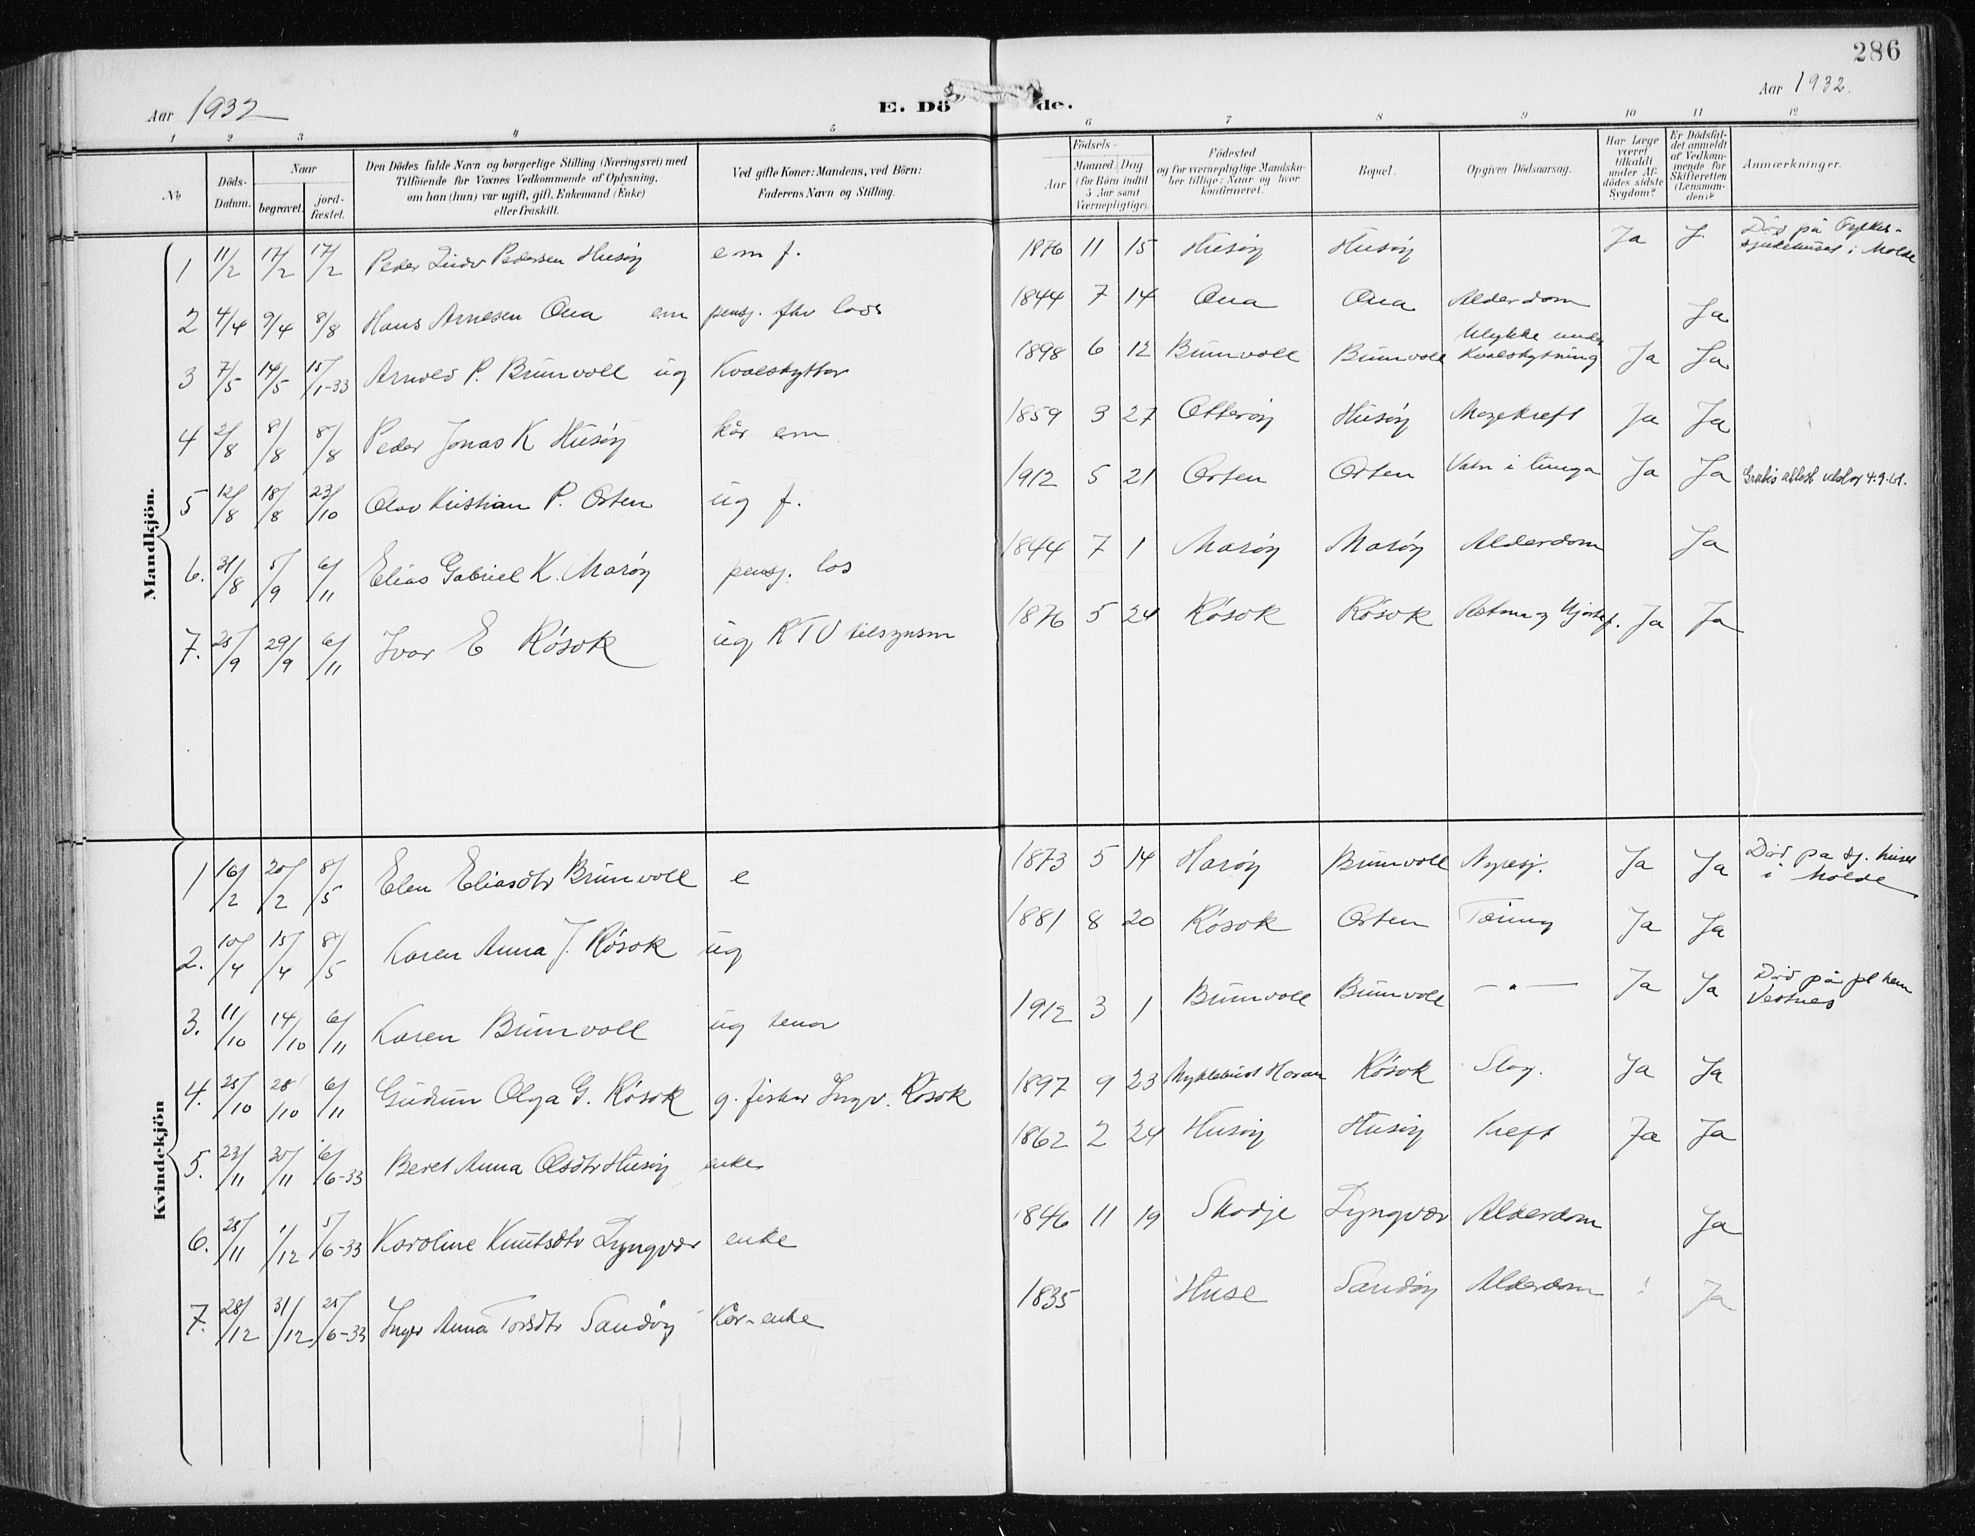 286
Aar 1932
E. Dö de.
Aar 1932.
1 2 3 4 5 6 7 8 9 10 11 12
No
Döds-Datum.
Naar
begravet. jord-fæstet.
Den Dödes fulde Navn og borgerlige Stilling (Næringsvei) med
Tilföiende for Voxnes Vedkommende af Oplysning,
om han (hun) var ugift, gift, Enkemand (Enke)
eller fraskilt.
Ved gifte Koner: Mandens, ved Börn:
Faderens Navn og Stilling.
Födsels-
Aar Maaned. Dag
(for Börn indtil
5 Aar samt
Værnepligtige).
Födested
og for værnepligtige Mandska-
ber tillige: Naar og hvor
konfirmeret.
Bopæl.
Opgiven Dödsaarsag.
Har Læge
været
tilkaldt
under Af-
dödes sidste
Sygdom?
Er Dödsfal-
det anmeldt
af Vedkom-
mende for
Skifteretten
(Lensman-
den)?
Anmærkninger.
Mandkjön.
1 11/2 17/2 17/2 Peder Ludv Pedersen Husöy em f. 1876 11 15 Husöy Husöy Ja J. Död på Fylkes-
sjukehuset i Molde
2 4/4 9/4 8/8 Hans Arnesen Ona em pensj. fhv lods 1844 7 14 Ona Ona Alderdom Ja
3 7/5 14/5 15/1-33 Arnold P. Brunvoll ug Kvalskyttar 1898 6 12 Brunvoll Brunvoll Ulykke under
Kvalskytning Ja Ja
4 2/8 8/8 8/8 Peder Jonas K Husöy kår em 1859 3 27 Otteröy Husöy Magekreft Ja Ja
5 12/8 18/8 23/10 Olav Kristian P. Orten ug f. 1912 5 21 Orten Orten Vatn i lunga Ja Ja Gratis attest utstov 4.9.61.
6. 31/8 5/9 6/11 Elias Gabriel K. Maröy pensj. los 1844 7 1 Maröy Maröy Alderdom Ja
7. 25/9 29/9 6/11 Ivar E Rösok ug RTV tilsynsm 1876 5 24 Rösok Rösok Astma og Hjertef. Ja Ja
Kvindekjön
1 16/2 20/2 8/5 Elen Eliasdtr Brunvoll e 1873 5 14 Haröy Brunvoll Nyresj. Ja Ja Död pa sj. huset
i Molde
2. 10/4 15/4 8/5 Karen Anna J. Rösok ug 1881 8 20 Rösok Orten Tæring Ja Ja
3. 11/10 14/10 6/11 Karen Brunvoll ug tenar 1912 3 1 Brunvoll Brunvoll — " — Ja Ja Död på pl heim
Vestnes
4. 25/10 28/10 6/11 Gudrun Olga G. Rösok g. fisker Ingv. Rösok 1897 9 23 Myklebust Haram Rösok Slag. Ja Ja
5. 23/11 30/11 6/6-33 Beret Anna Olsdtr Husöy enke 1862 2 24 Husöy Husöy Kreft Ja Ja
6. 25/11 1/12 5/6-33 Karoline Knutsdtr Lyngvær enke 1846 11 19 Skodje Lyngvær Alderdom Ja
7. 28/12 31/12 25/6-33 Inger Anna Torsdtr Sandöy Kår-enke 1835 Huse Sandöy Alderdom Ja